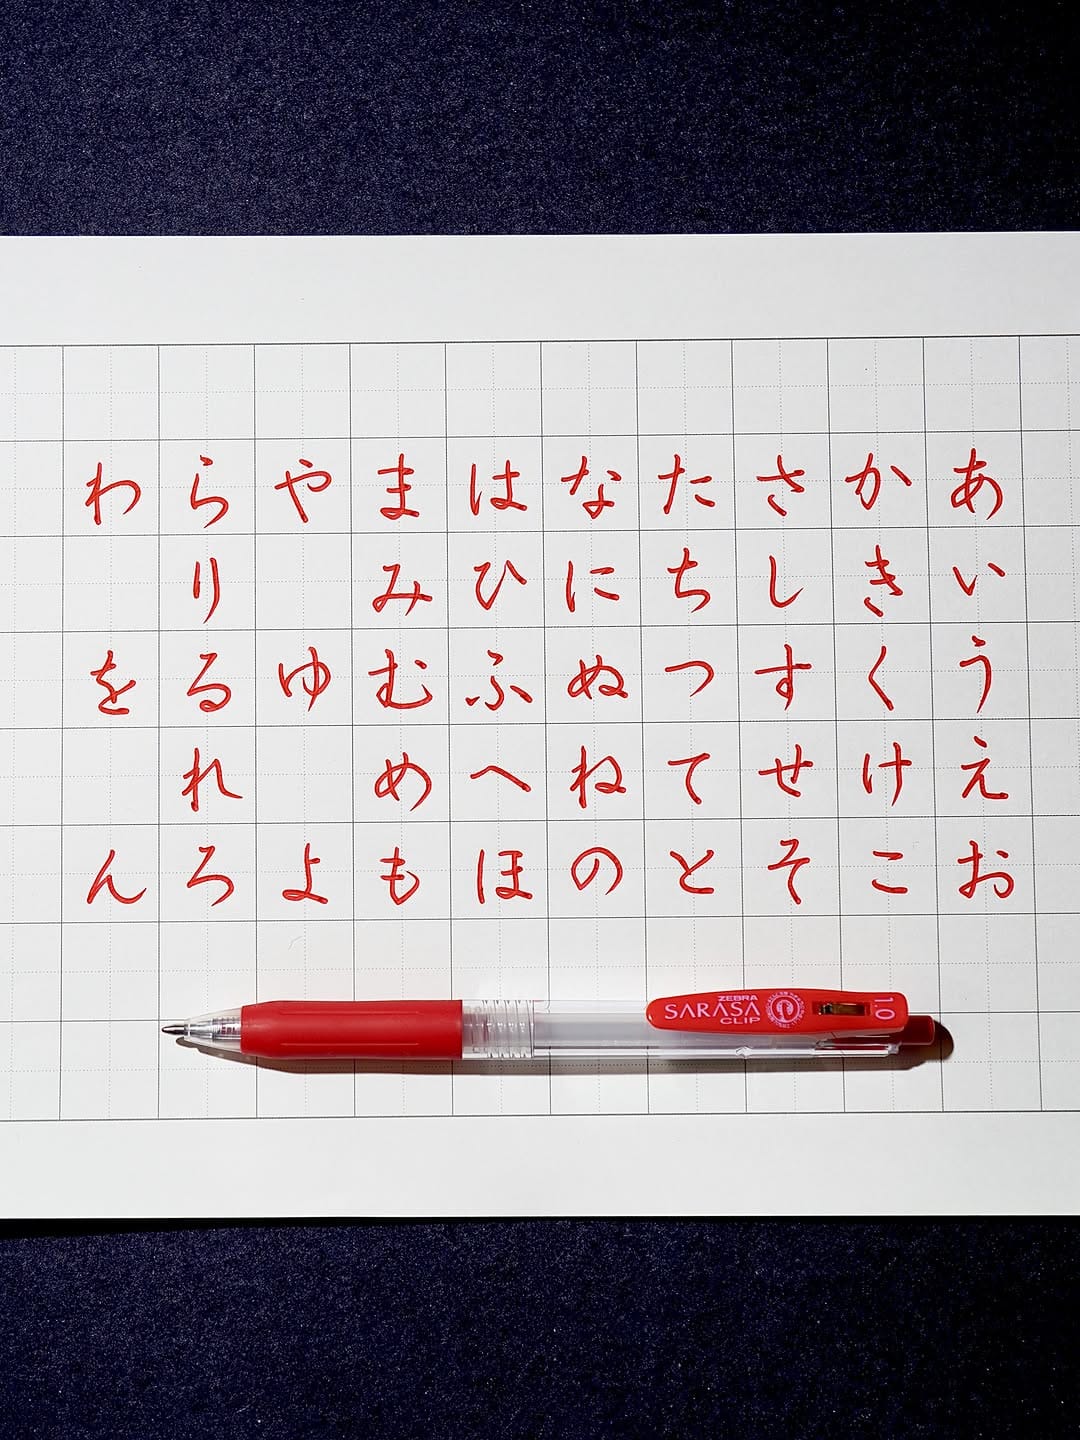 あいうえお
かきくけこ
さしすせそ
たちつてと
なにぬねの
はひふへほ
まみむめも
やゆよ
らりるれろ
わをん
ZEBRA
SARASA
CLIP
1.0